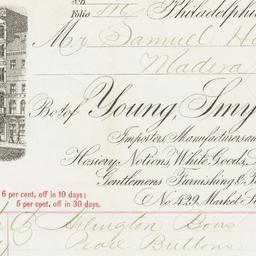 Folio Philadelphia
Mr Samuel
Madera
Bo't of Young, Smy
Importers, Manufacturers and
Hosiery, Notions, White Goods,
Gentlemens Furnishing &
No. 429 Market S
6 per cent. off in 10 days;
5 per cent. off in 30 days.
Arlington Bows
Pearl Buttons